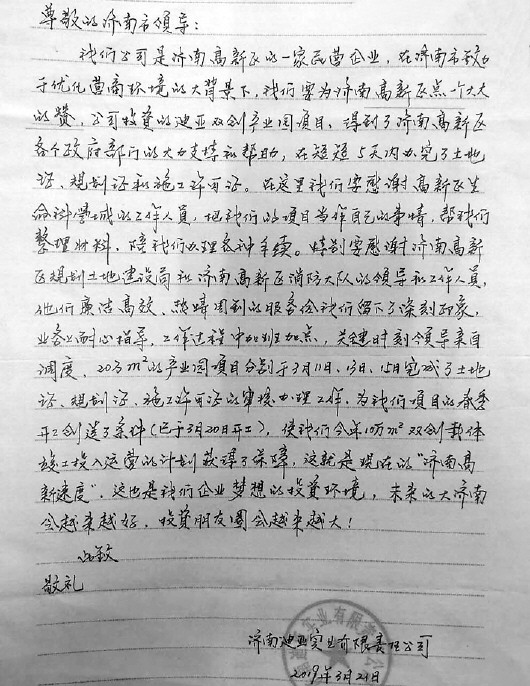 尊敬的济南市领导:
我们公司是济南高新区的一家民营企业,在济南市致力
于优化营商环境的大背景下,我们要为济南高新区点一个大大
的赞,公司投资的迪亚双创产业园项目,得到了济南高新区
各个政府部门的大力支持和帮助,在短短5天内办完了土地
证、规划证和施工许可证。在这里我们要感谢高新区生
命科学城的工作人员,把我们的项目当作自己的事情,帮我们
整理材料、陪我们办理各种手续。特别要感谢济南高新
区规划土地建设局和济南高新区消防大队的领导和工作人员,
他们廉洁高效、热情周到的服务给我们留下了深刻印象,
业务上耐心指导,工作过程中加班加点,关键时刻领导亲自
调度,20万m²的产业园项目分别于3月11日、13日、15日完成了土地
证、规划证、施工许可证的审核办理工作,为我们项目的春季
开工创造了条件(已于3月20日开工),使我们今年10万m²双创载体
竣工投入运营的计划获得了保障,这就是现在的“济南高
新速度”,这也是我们企业梦想的投资环境,未来的大济南
会越来越好,投资朋友圈会越来越大!
此致
敬礼
济南迪亚实业有限责任公司
2019年3月21日